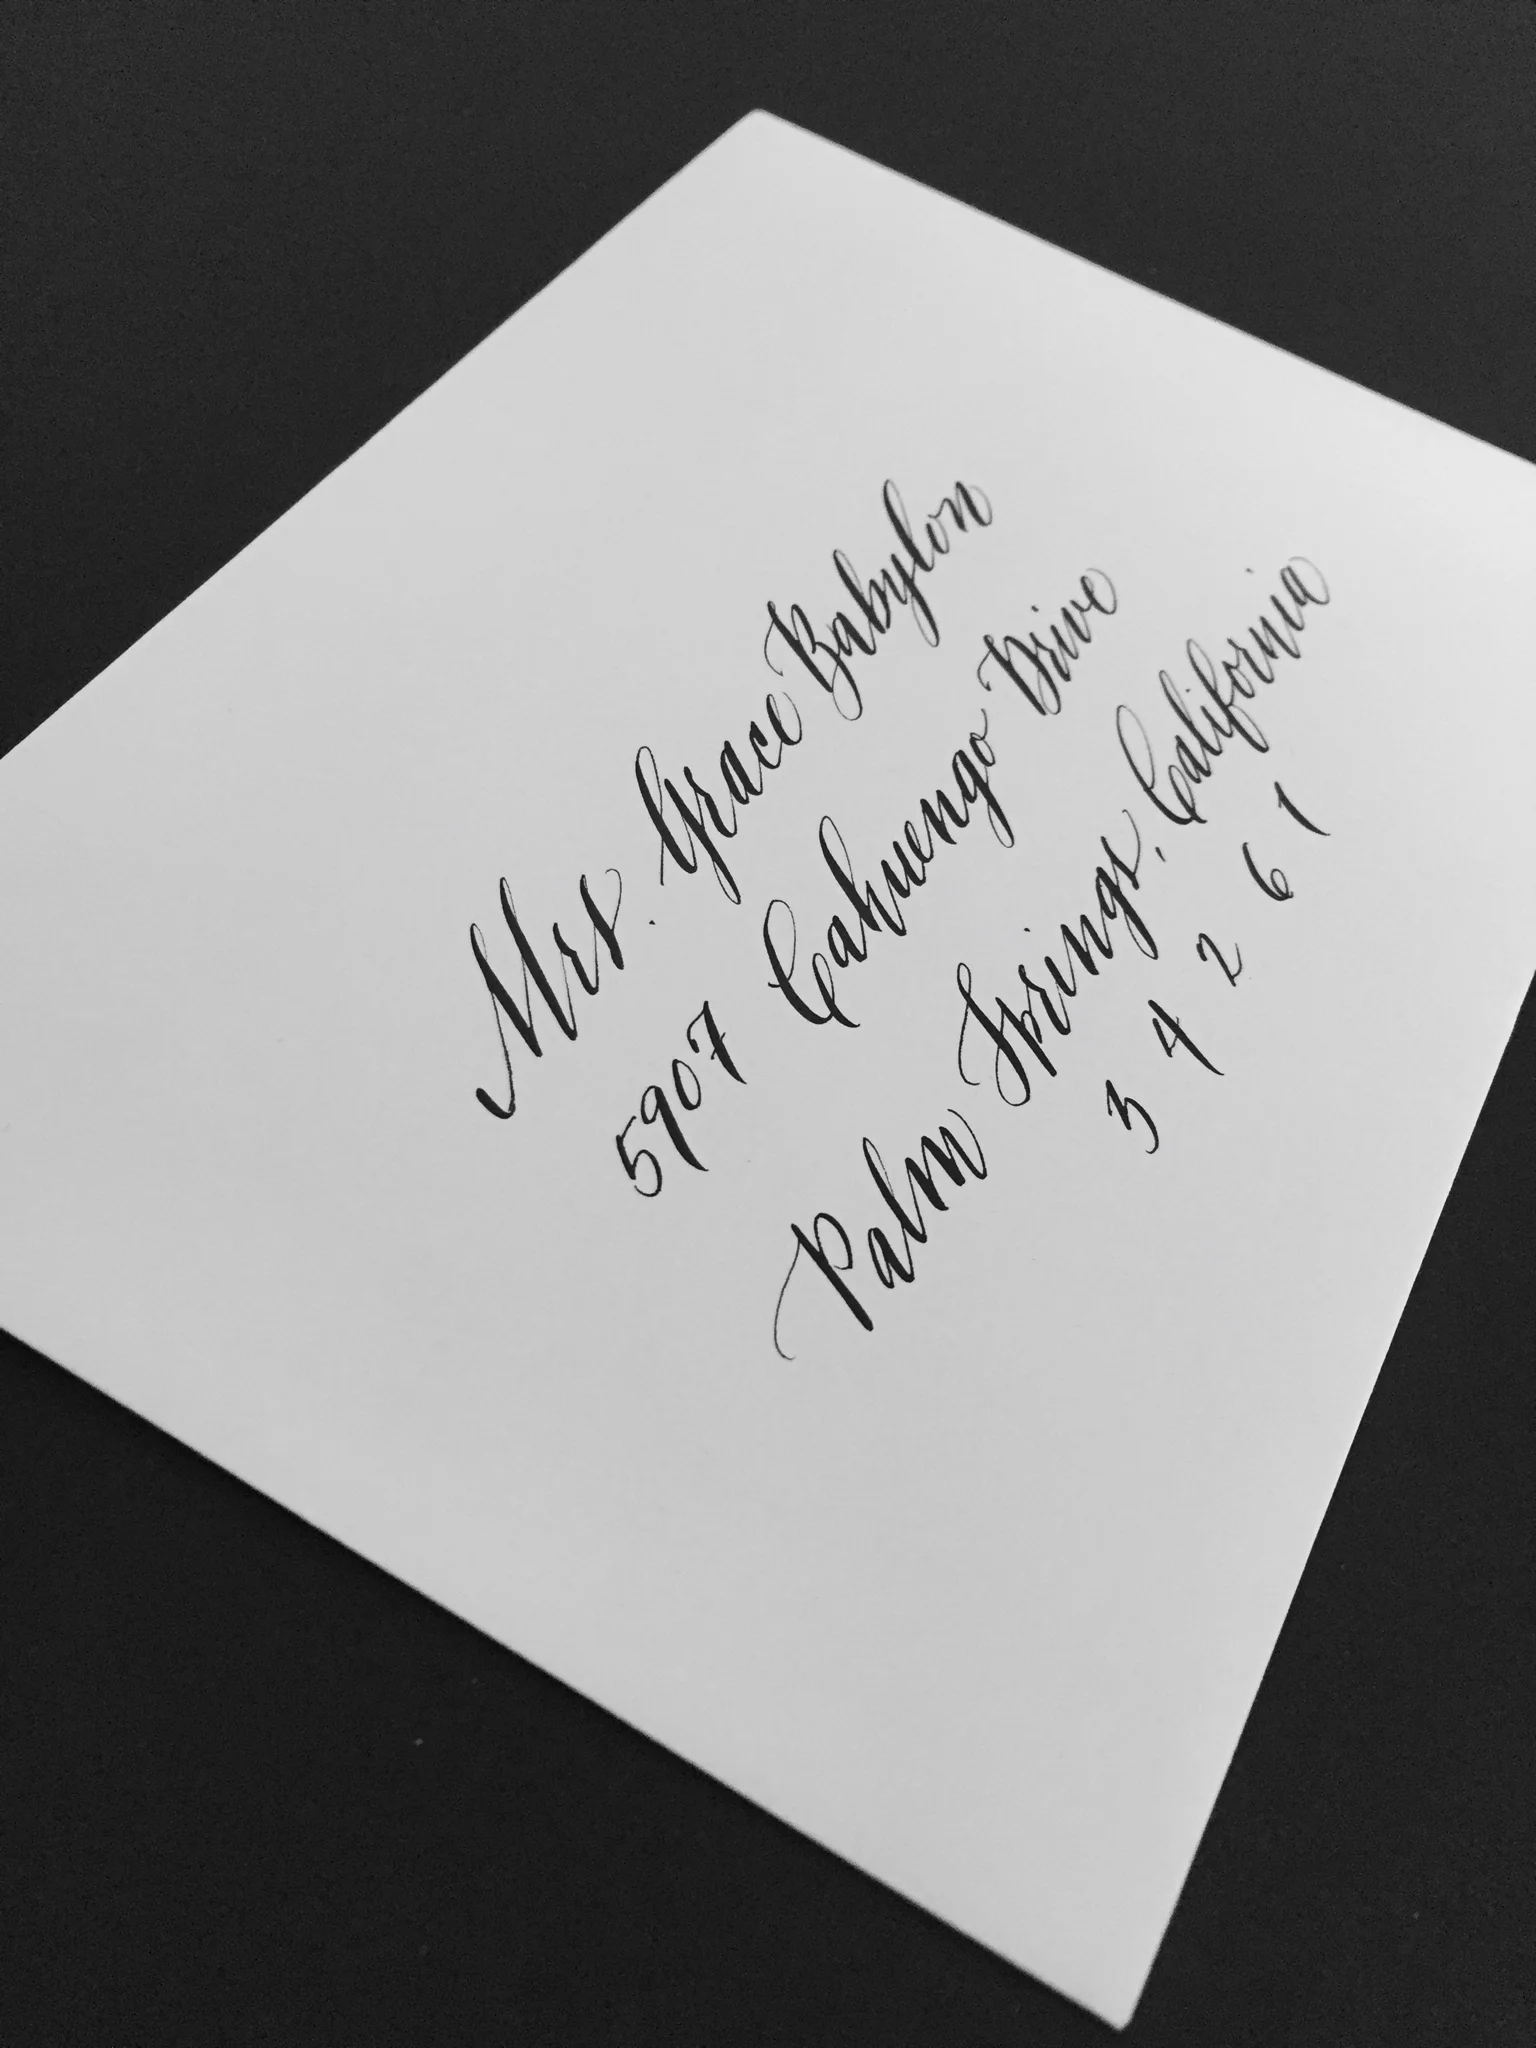 Mrs. Grace Babylon
5907 Cahuengo Drive
Palm Springs, California
3 4 2 6 1